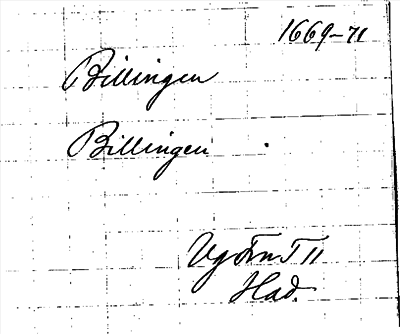 1669-71
Billingen
Billingen
Vg Frn T 11
Had.